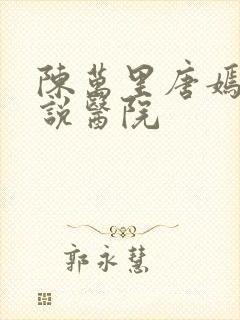 陳萬里唐嫣
說醫院
郭永慧